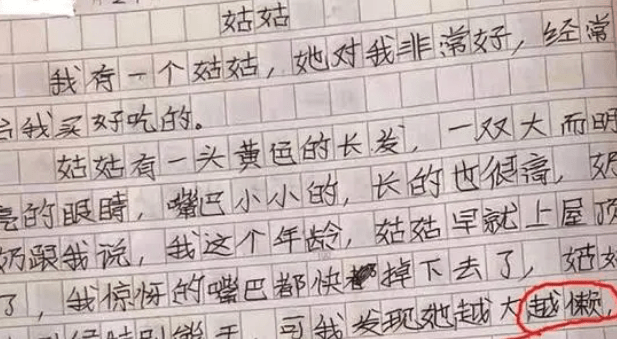 姑姑
我有一个姑姑，她对我非常好，经常
给我买好吃的。
姑姑有一头黄色的长发，一双大而明
亮的眼睛，嘴巴小小的，长的也很高，奶
奶跟我说，我这个年龄，姑姑早就上屋顶
了，我惊讶的嘴巴都快掉下去了，姑姑
可我发现她越大越懒，